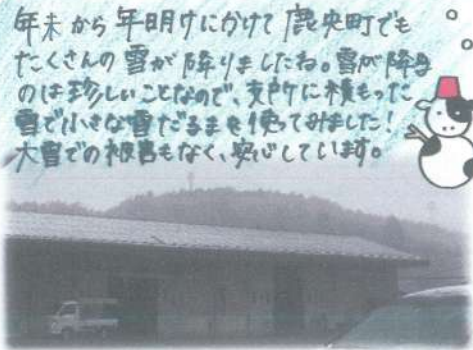 年末から年明けにかけて鹿央町でも
たくさんの雪が降りましたね。雪が降る
のは珍しいことなので、支所に積もった
雪で小さな雪だるまを作ってみました!
大雪での被害もなく、安心しています。